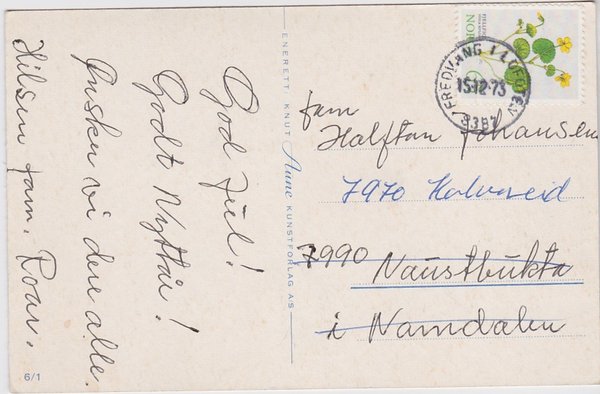 God Jul!
Godt Nyttår!
ønsker vi dere alle.
Hilsen fam. Roar.
ENERETT: KNUT Aune KUNSTFORLAG A/S
6/1
NORGE
FREDVANG I LOFOTEN
15.12.73
8387
fam
Halftan Johansen
7970 Kolvereid
7990 Naustbukta
i Namdalen